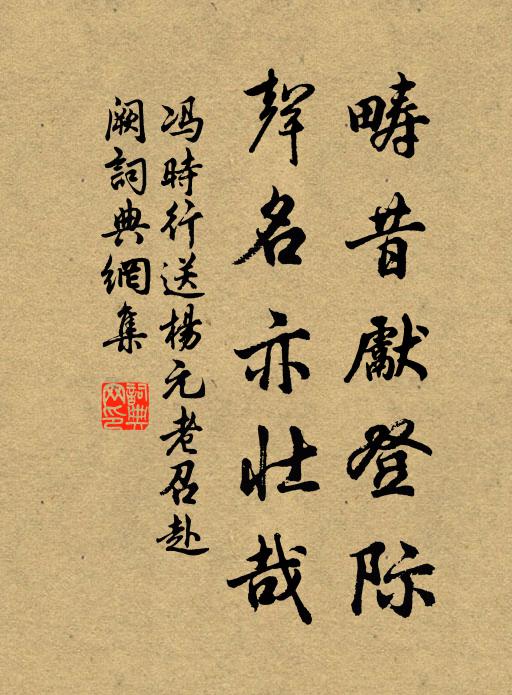 畴昔獻登际
聲名亦壯哉
冯時行送楊元老召赴
阙詞典網集
詞典网印